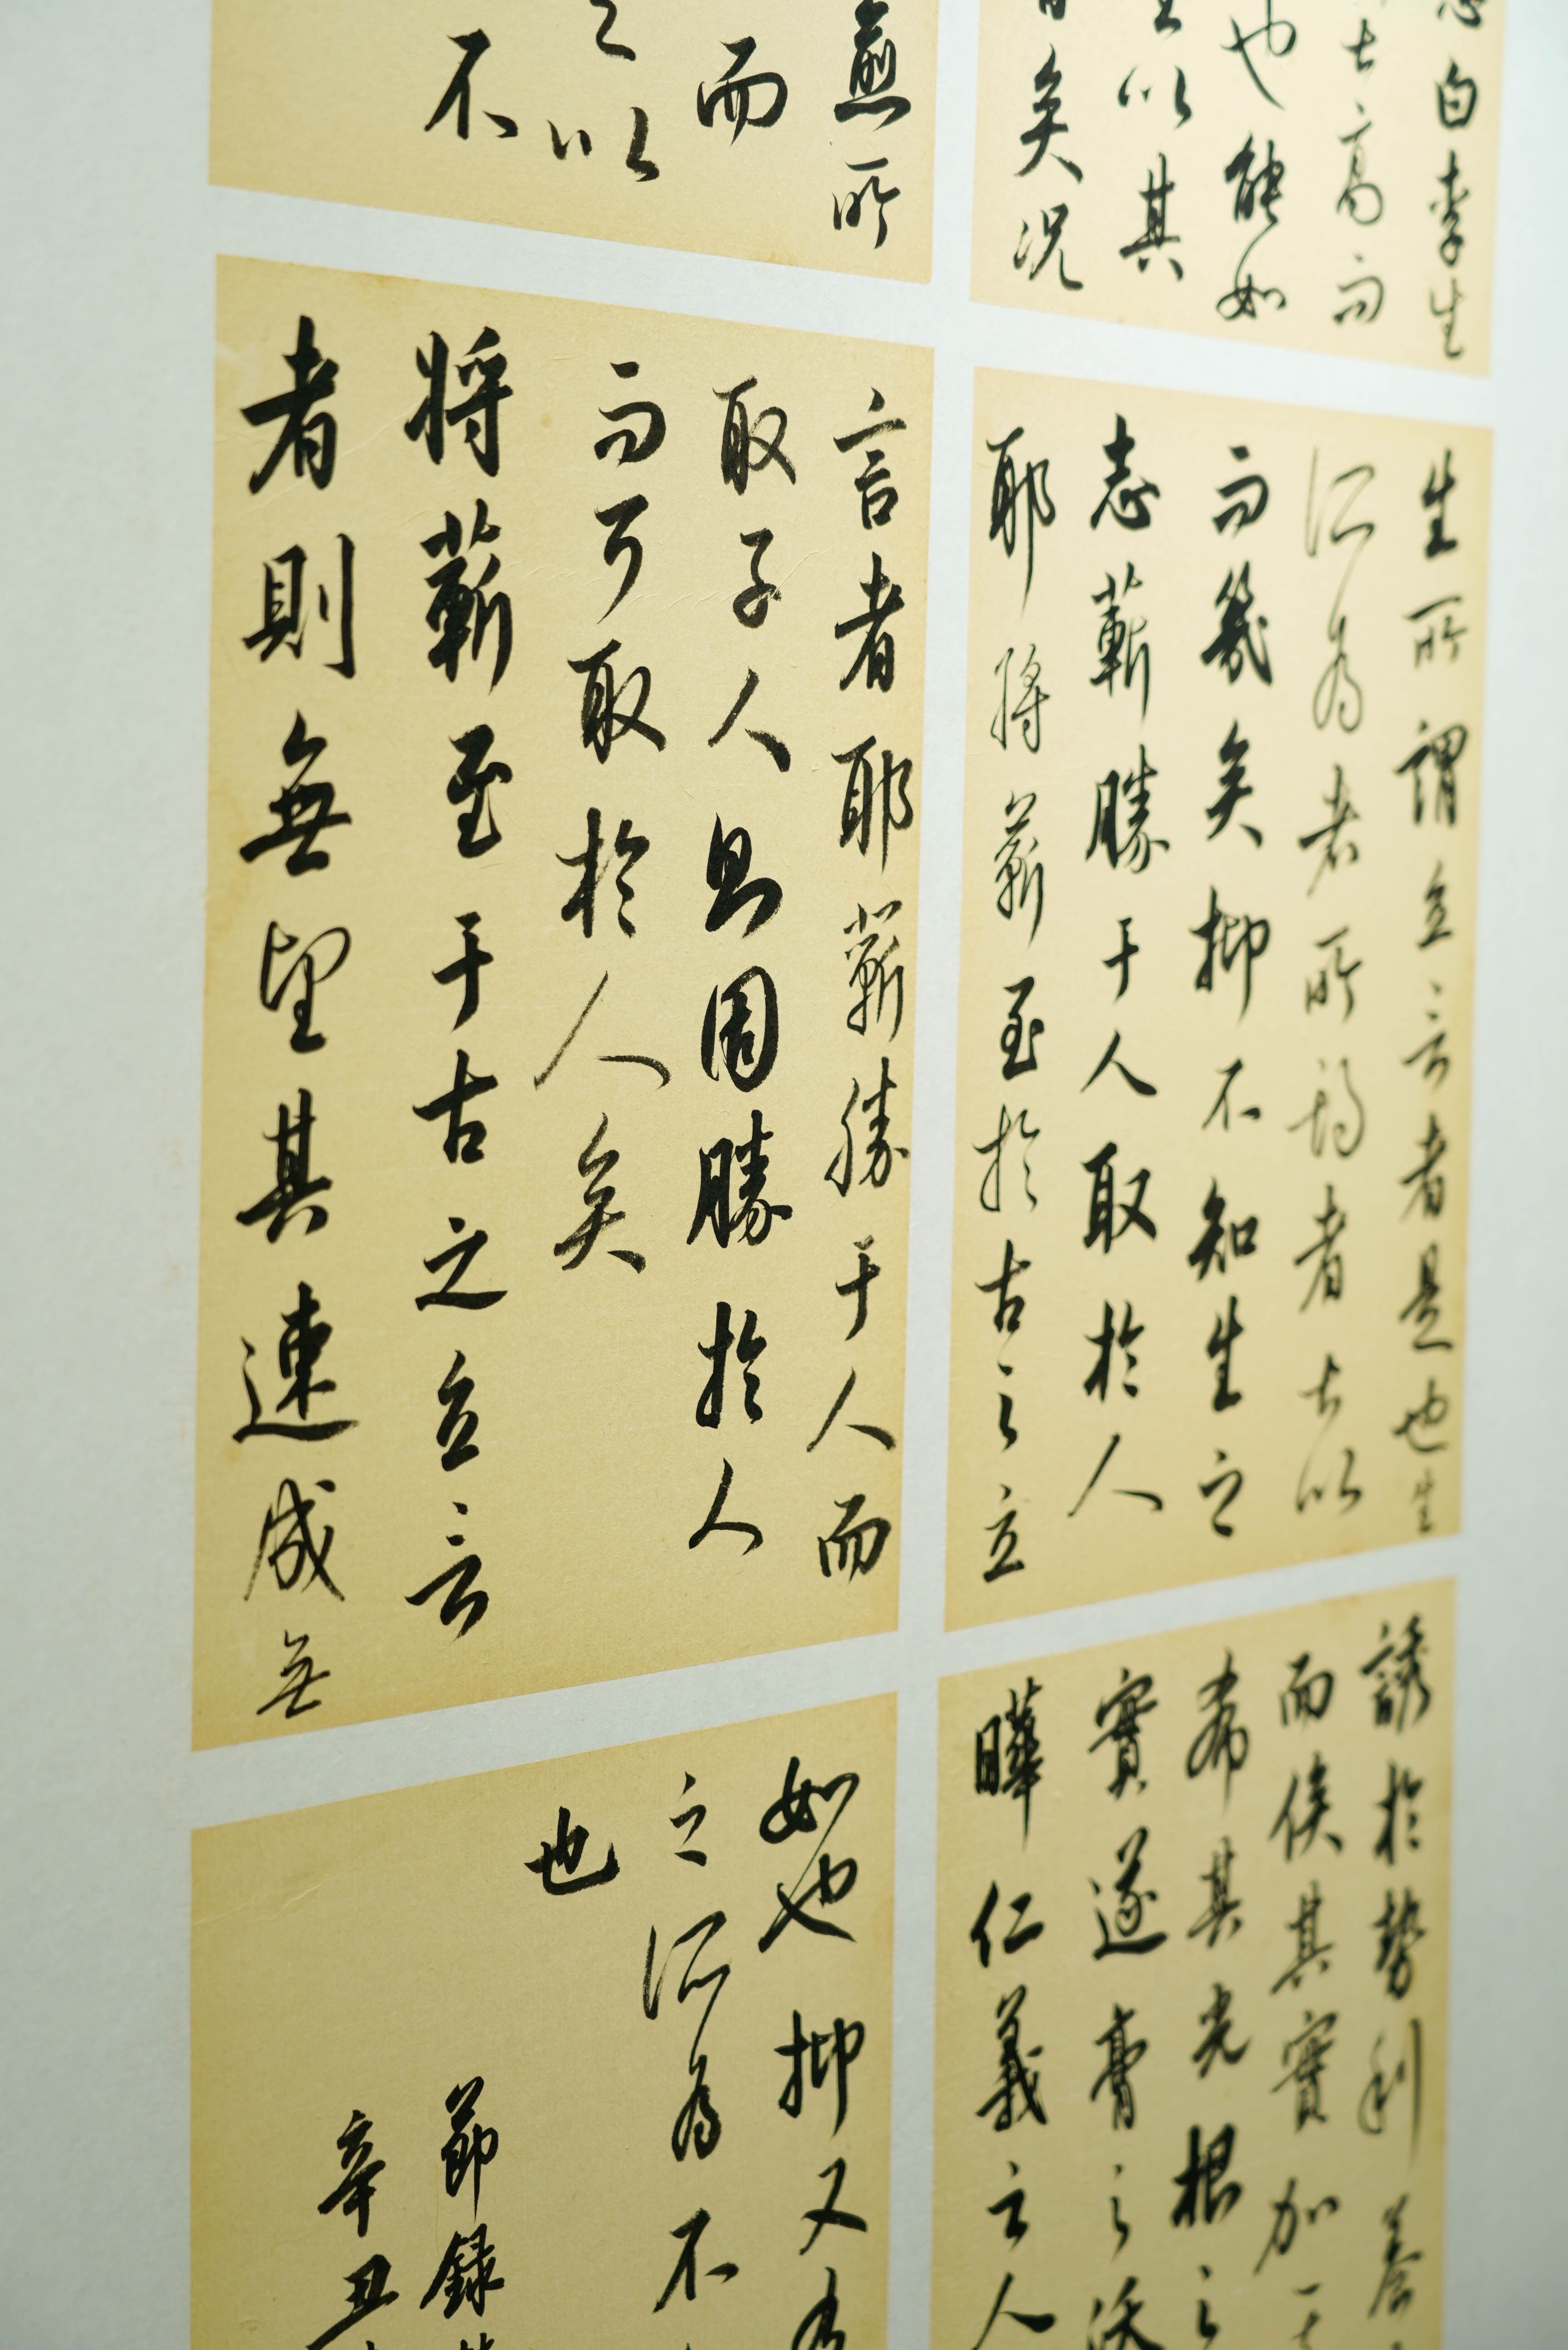 白李生
高而
也能如
以其
矣況
所
而
以
不
生所謂立言者是也生
所為者所期者甚以
而幾矣抑不知生之
志蘄勝于人取於人
耶將蘄至於古之立
言者耶蘄勝于人而
取于人則固勝於人
而可取於人矣
將蘄至于古之立言
者則無望其速成無
誘於勢利養
而俟其實加
希其光根之
實遂膏之沃
曄仁義之人
如也抑又有
之所為不
也
節錄
辛丑